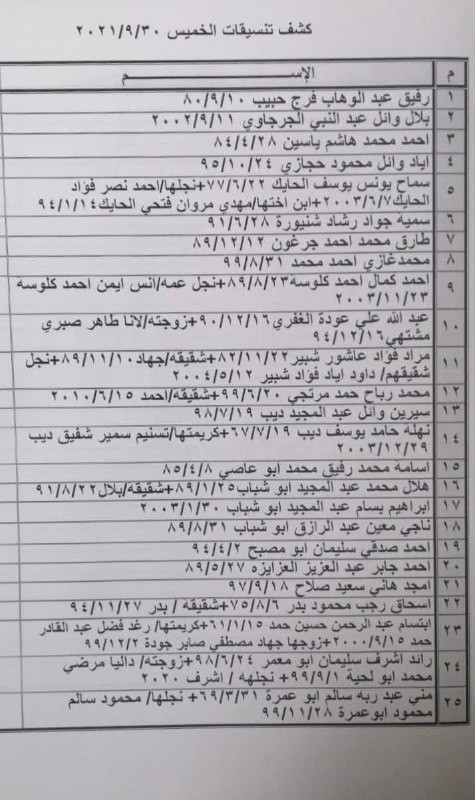 كشف تنسيقات الخميس ٢٠٢١/٩/٣٠
م الإســـــــــم
١ رفيق عبد الوهاب فرج حبيب ٨٠/٩/١٠
٢ بلال وائل عبد النبي الجرجاوي ٢٠٠٢/٩/١١
٣ احمد محمد هاشم ياسين ٨٤/٤/٢٨
٤ اياد وائل محمود حجازي ٩٥/١٠/٢٤
٥ سماح يونس يوسف الحايك ٧٧/٦/٢٢+نجلها/احمد نصر فؤاد
الحايك٢٠٠٣/٦/٧+ابن اختها/مهدي مروان فتحي الحايك٩٤/١/١٤
٦ سميه جواد رشاد شنيورة ٩١/٦/٢٨
٧ طارق محمد احمد جرغون ٨٩/١٢/١٢
٨ محمدغازي احمد محمد ٩٩/٨/٣١
٩ احمد كمال احمد كلوسة٨٩/٨/٢٣+نجل عمه/انس ايمن احمد كلوسة
٢٠٠٣/١١/٢٣
١٠ عبد الله علي عودة الغفري٩٠/١٢/١٦+زوجته/لانا طاهر صبري
مشتهي٩٤/١٢/١٦
١١ مراد فؤاد عاشور شبير٨٢/١١/٢٢+شقيقه/جهاد٨٩/١١/١٠+نجل
شقيقهم/ داود اياد فؤاد شبير ٢٠٠٤/٥/١٢
١٢ محمد رباح حمد مرتجي ٩٩/٦/٢٠+شقيقه/احمد ٢٠١٠/٦/١٥
١٣ سيرين وائل عبد المجيد ديب ٩٨/٧/١٩
١٤ نهله حامد يوسف ديب ٦٧/٧/١٩+كريمتها/تسنيم سمير شفيق ديب
٢٠٠٣/١٢/٢٩
١٥ اسامه محمد رفيق محمد ابو عاصي ٨٥/٤/٨
١٦ هلال محمد عبد المجيد ابو شباب٨٩/١/٢٥+شقيقه/بلال٩١/٨/٢٢
١٧ ابراهيم بسام عبد المجيد ابو شباب ٢٠٠٣/١/٣٠
١٨ ناجي معين عبد الرازق ابو شباب ٨٩/٨/٣١
١٩ احمد صدقي سليمان ابو مصبح ٩٤/٤/٢
٢٠ احمد جابر عبد العزيز العزايزه ٨٩/٥/٢٧
٢١ امجد هاني سعيد صلاح ٩٧/٩/١٨
٢٢ اسحاق رجب محمود بدر ٧٥/٨/٦+شقيقة / بدر ٩٤/١١/٢٧
٢٣ ابتسام عبد الرحمن حسين حمد ٦١/١/١٥+كريمتها/ رغد فضل عبد القادر
حمد ٢٠٠٠/٩/١٥+زوجها جهاد مصطفي صابر جودة ٩٩/١٢/٢
٢٤ رائد اشرف سليمان ابو معمر ٩٨/٦/٢٤+زوجته/ داليا مرضي
محمد ابو لحية ٩٩/٩/١+ نجلهه / اشرف ٢٠٢٠
٢٥ مني عبد ربه سالم ابو عمرة ٦٩/٣/٣١+ نجلها/ محمود سالم
محمود ابوعمرة ٩٩/١١/٢٨